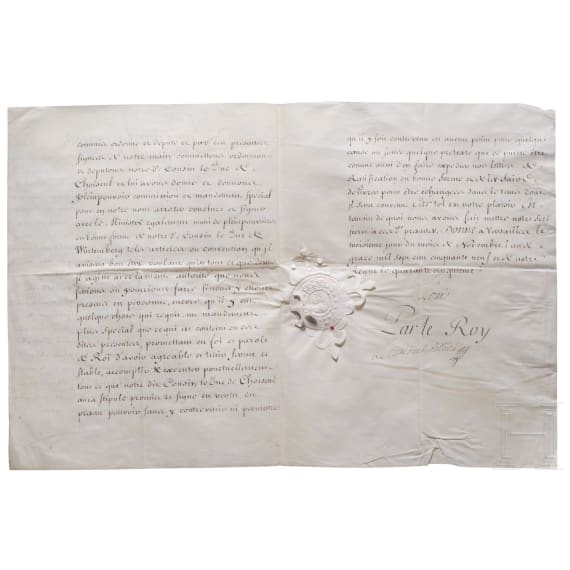 commis ordonné et deputé et par ces presentes
signées de notre main commettons ordonnons
et deputons notre d. Cousin le Duc de
Choiseul et lui avons donné et donnons
pleinpouvoir commission et mandement special
pour en notre nom arreter conclure et signer
avec le Ministre egalement muni de pleinpouvoirs
en bonne forme de notre d. Cousin le Duc de
Wirtemberg tels articles ou convention qu'il
avisera bon être voulant qu'en tout ce
il agisse avec la meme autorité que nous
ferions ou pourrions faire si nous y etions
presens en personne, encore qu'il y eut
quelque chose qui requit un mandement
plus special que ce qui est contenu en ces
dites presentes, promettant en foi et parole
de Roi d'avoir agreable et tenir ferme et
stable, accomplir et executer ponctuellement
tout ce que notre dit Cousin le Duc de Choiseul
aura stipulé promis et signé en vertu du
present pouvoir sans y contrevenir ni permettre
qu'il y soit contrevenu en aucun point pour quelque
cause ou sous quelque pretexte que ce puisse être
comme aussi d'en faire expedier nos lettres de
Ratification en bonne forme et de les faire
delivrer pour être echangées dans le tems dont
il sera convenu. Car tel est notre plaisir. En
temoin de quoi nous avons fait mettre notre scel
secret à ces presentes. Donné à Versailles le
troisieme jour du mois de Novembre l'an de
grace mil sept cent cinquante neuf et de notre
Regne le quarante cinquieme.
Louis
Par le Roy